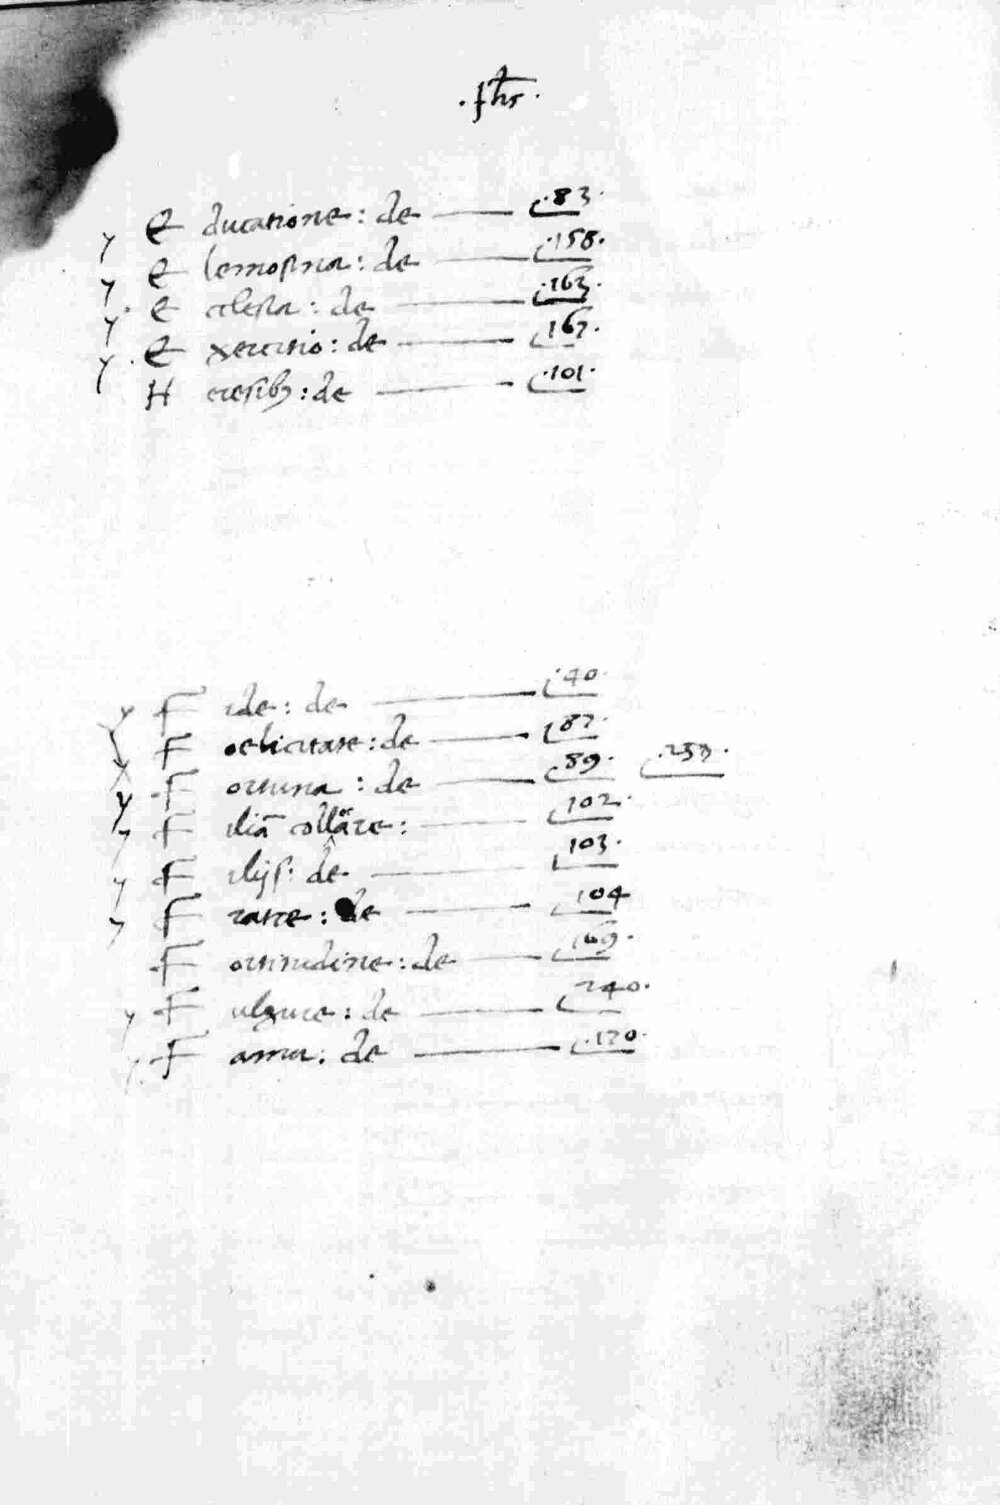 .yhs.
E ducatione: de .83.
E lemosina: de .158.
E clesia: de .163.
E xercitio: de .167.
H eresib3: de .101.
F ide: de .40.
F oelicitate: de .87.
F ortuna: de .89. .253.
F iliā collōre: .102.
F ilijs: de .103.
F ratre: de .104
F ortitudine: de .169.
F ulgure: de .240.
F ama: de .170.